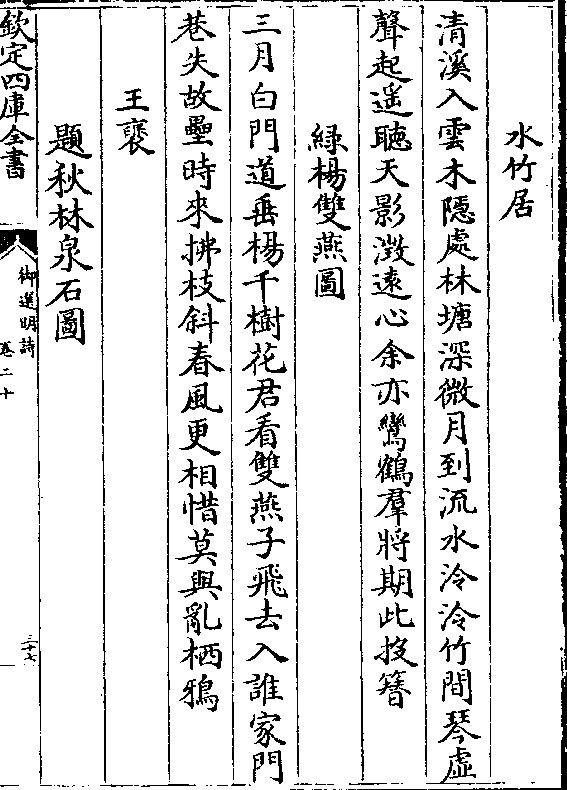 水竹居
清溪入雲木隱處林塘深微月到流水泠泠竹間琴虛
聲起遥聽天影澂遠心余亦鸞鶴羣將期此投簪
綠楊雙燕圖
三月白門道垂楊千樹花君看雙燕子飛去入誰家門
巷失故壘時來拂枝斜春風更相惜莫與亂栖鴉
王褒
題秋林泉石圖
欽定四庫全書
御選明詩
卷二十
三十七